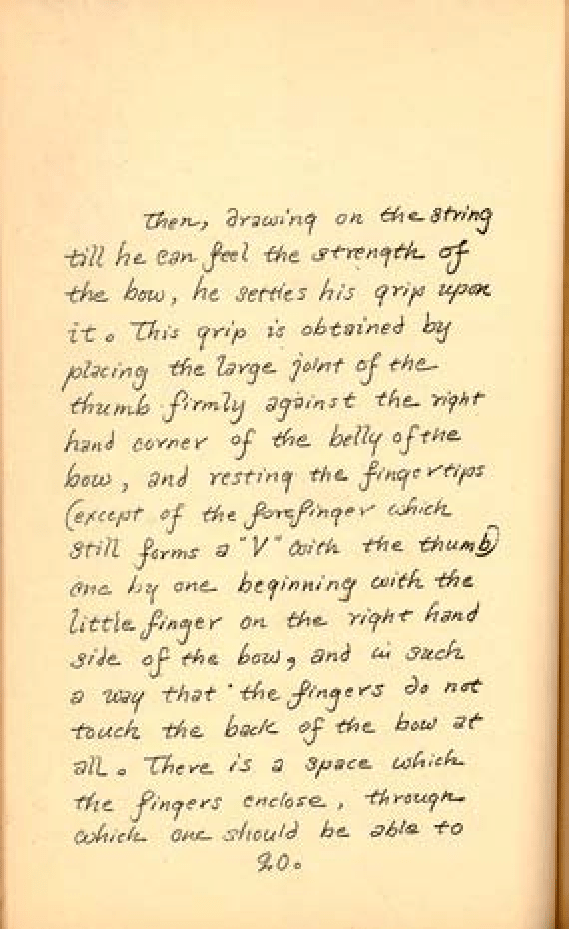 Then, drawing on the string
till he can feel the strength of
the bow, he settles his grip upon
it. This grip is obtained by
placing the large joint of the
thumb firmly against the right
hand corner of the belly of the
bow, and resting the fingertips
(except of the forefinger which
still forms a "V" with the thumb)
one by one beginning with the
little finger on the right hand
side of the bow, and in such
a way that the fingers do not
touch the back of the bow at
all. There is a space which
the fingers enclose, through
which one should be able to
20.